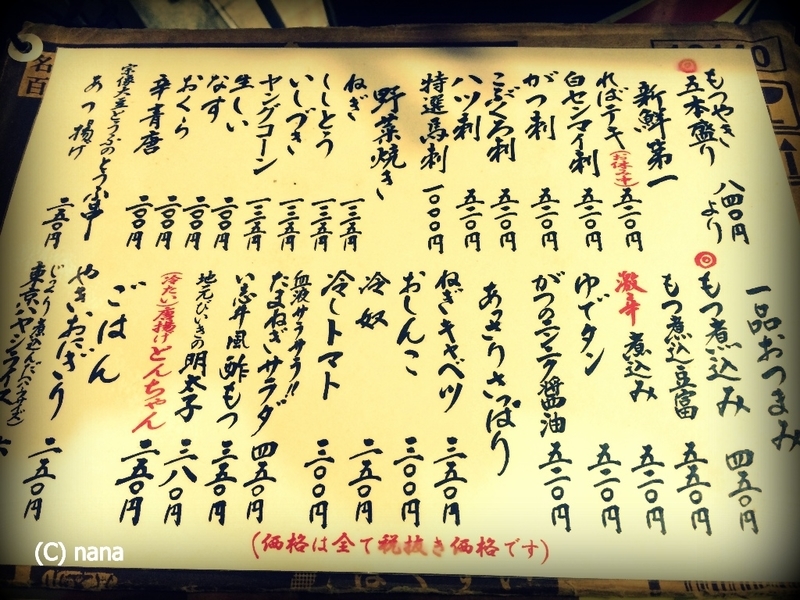 もつやき
五本盛り 八四〇円より
新鮮第一
ればテキ(お休み中) 五二〇円
白センマイ刺 五二〇円
がつ刺 五二〇円
こぶくろ刺 五二〇円
ハツ刺 五二〇円
特選馬刺 一〇〇〇円
野菜焼き
ねぎ 一三五円
ししとう 一三五円
いしづき 一三五円
ヤングコーン 一三五円
生しい
なす 二〇〇円
おくら 二〇〇円
辛青唐 二〇〇円
とうふのとうふ串
あつ揚げ 二五〇円
一品おつまみ
もつ煮込み 四五〇円
もつ煮込豆富 五五〇円
激辛煮込み 五二〇円
ゆでタン 五二〇円
がつのニンニク醤油 五二〇円
あっさりさっぱり
ねぎキャベツ 三五〇円
おしんこ 三〇〇円
冷奴 二五〇円
冷しトマト 三〇〇円
血液サラサラ!!
たまねぎサラダ 四五〇円
風酢もつ 三五〇円
地元びいきの明太子 三八〇円
(冷たい)唐揚げとんちゃん
ごはん 二五〇円
やきおにぎり 二五〇円
東京ハヤシライス
(価格は全て税抜き価格です)
名
百
(C) nana